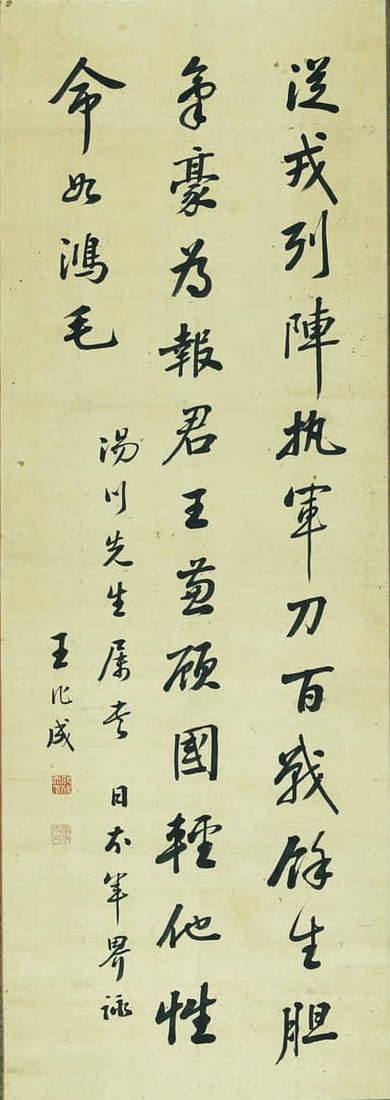 從戎列陣執軍刀百戰餘生胆
氣豪為報君王兼顧國輕他性
命如鴻毛
湯川先生属書 日本軍界詠
王化成